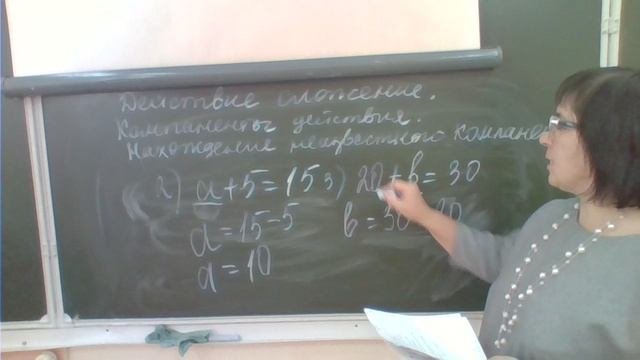 Действие сложение.
Компаненты действия.
Нахождения неизвестного компане
2) a+5=15 3) 20+b=30
a=15-5 b=30-20
a=10